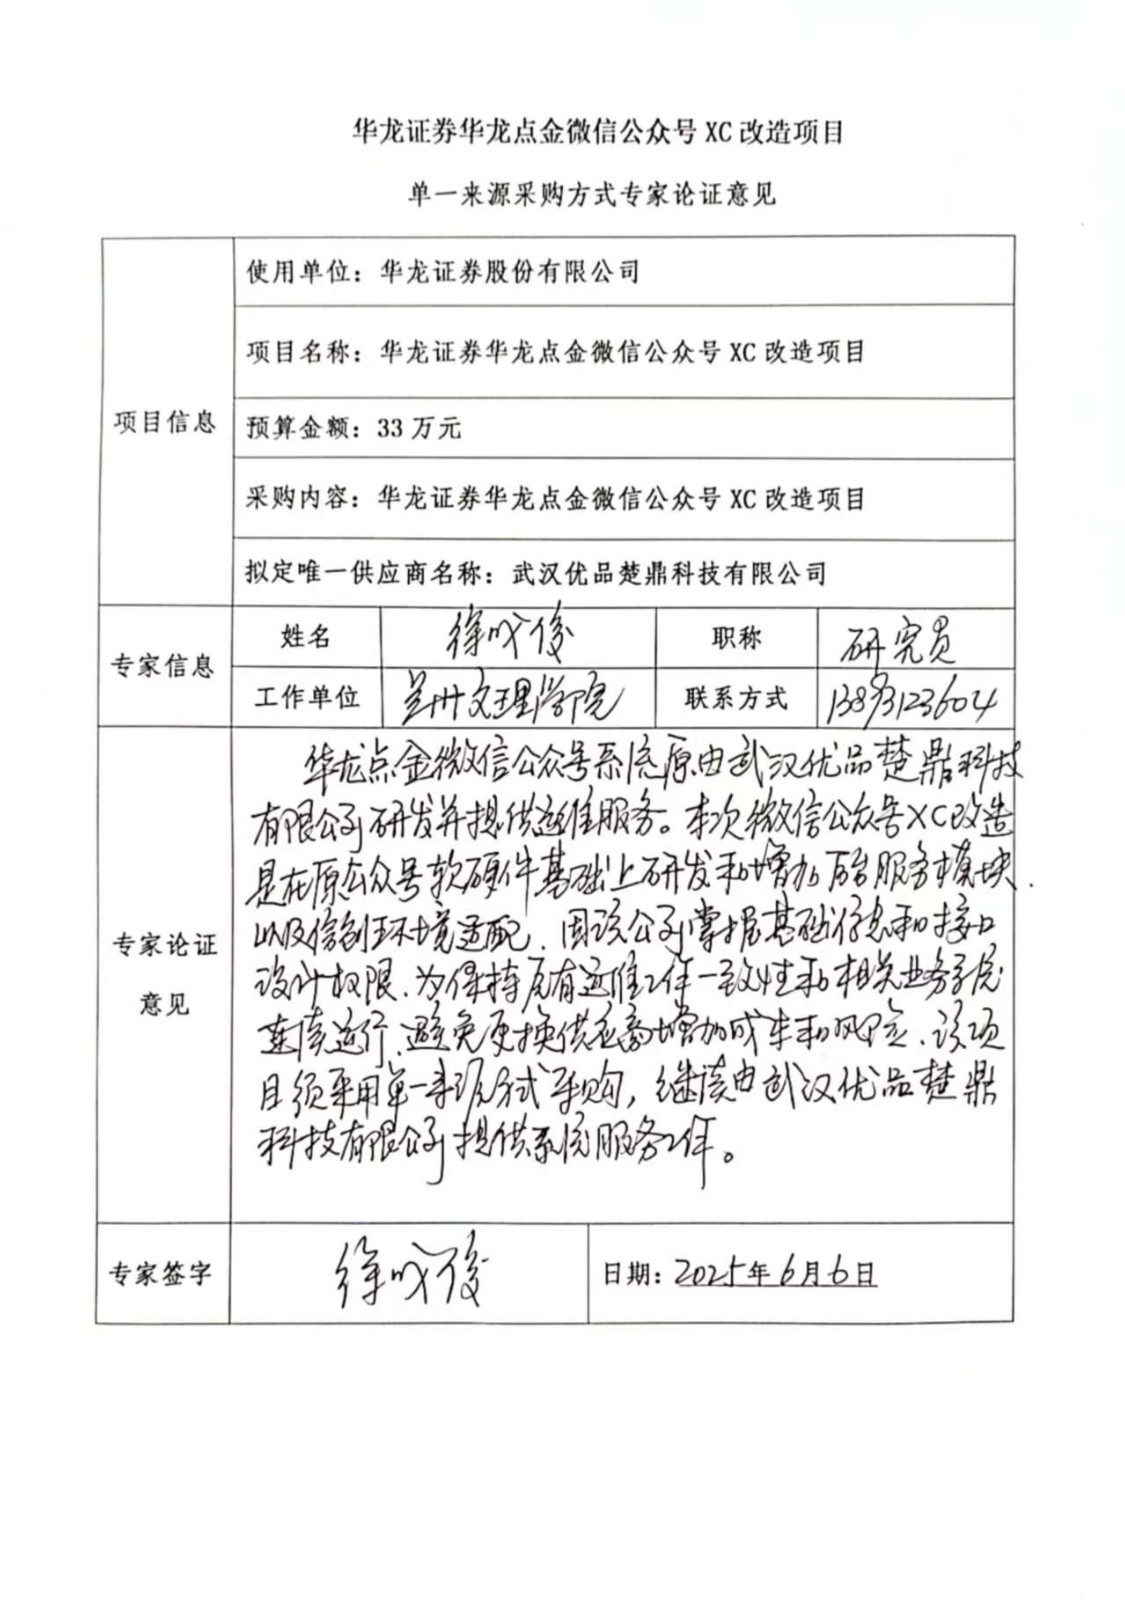 华龙证券华龙点金微信公众号 XC 改造项目
单一来源采购方式专家论证意见
项目信息
使用单位：华龙证券股份有限公司
项目名称：华龙证券华龙点金微信公众号 XC 改造项目
预算金额：33 万元
采购内容：华龙证券华龙点金微信公众号 XC 改造项目
拟定唯一供应商名称：武汉优品楚鼎科技有限公司
专家信息
姓名 徐成俊 职称 研究员
工作单位 兰州文理学院 联系方式
专家论证
意见
华龙点金微信公众号系统原由武汉优品楚鼎科技
有限公司研发并提供运维服务。本次微信公众号XC改造
是在原公众号软硬件基础上研发和增加后台服务模块，
以及信创环境适配，因该公司掌握基础信息和接口
设计权限，为保持原有运维工作一致性和相关业务系统
连续运行，避免更换供应商增加成本和风险，该项
目须采用单一来源方式采购，继续由武汉优品楚鼎
科技有限公司提供系统服务工作。
专家签字 徐成俊 日期：2025年6月6日